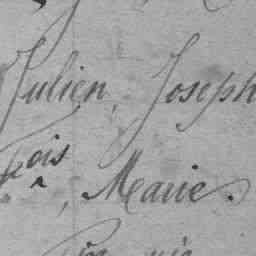 Julien, Joseph
fçois, Marie.